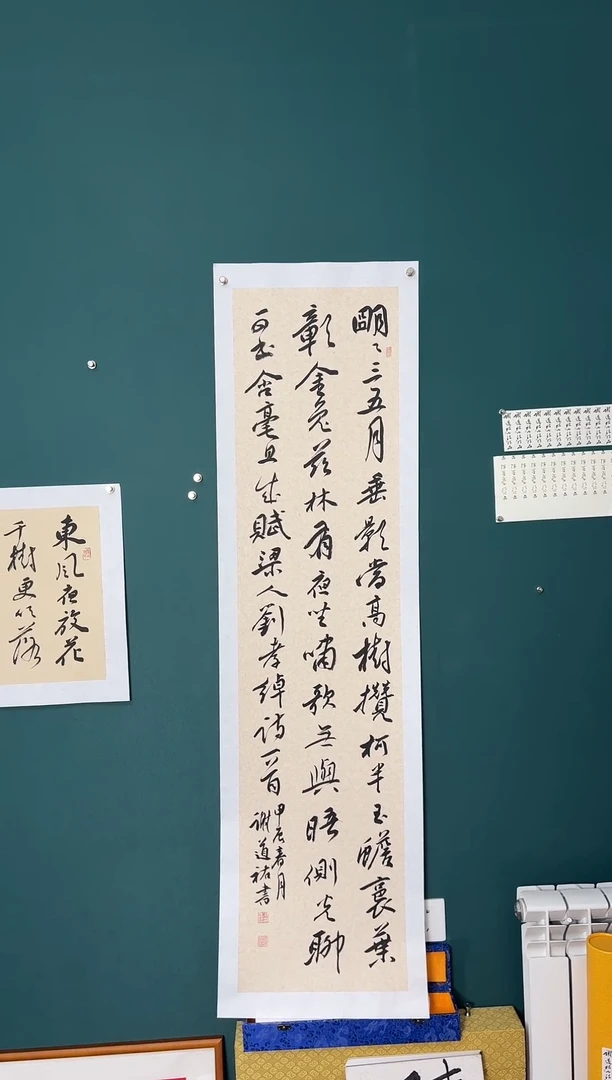 朙〻三五月垂影當高樹攢柯半玉蟾裛葉
彰金兔兹林有夜坐嘯歌无與晤側光聊
可書含毫且成賦梁人劉孝綽詩一首
甲辰春月
謝道祐書
東風夜放花
千樹更吹落